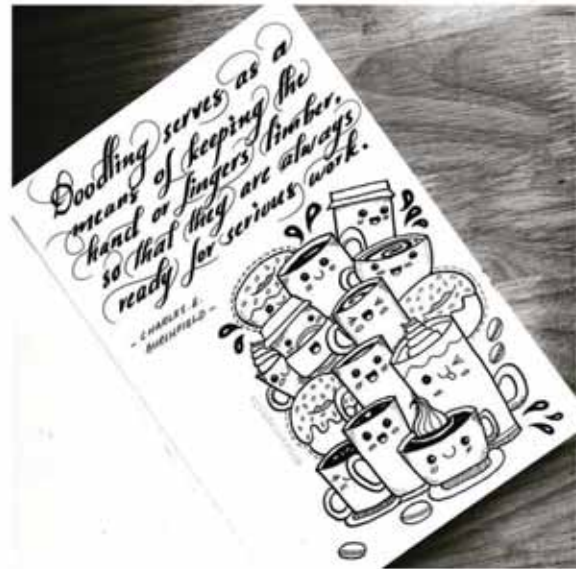 Doodling serves as a
means of keeping the
hand or fingers limber,
so that they are always
ready for serious work.
- CHARLES E.
BURCHFIELD -